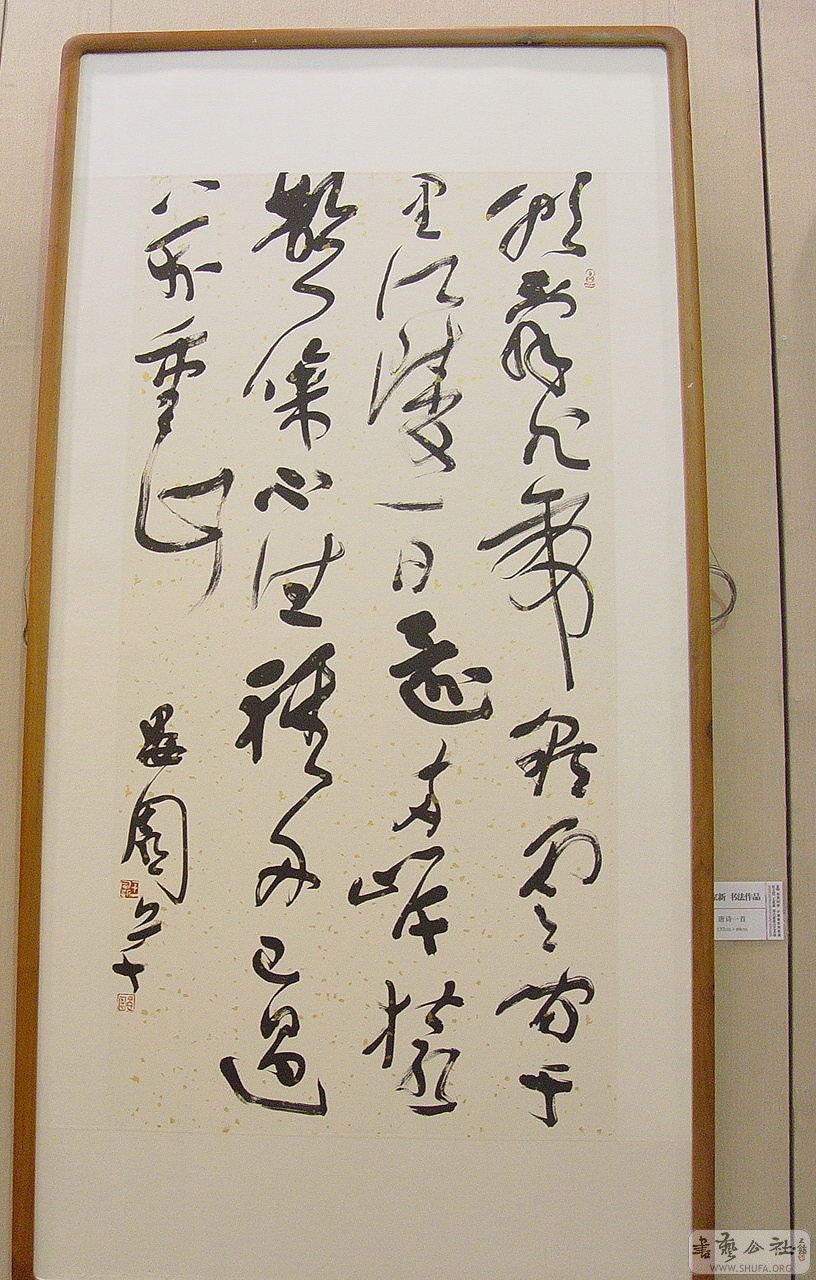 朝辭白帝彩雲间千
里江陵一日還两岸猿
聲啼不住輕舟已過
萬重山
園
新 书法作品
唐诗一首
書藝公社
WWW.SHUFA.ORG